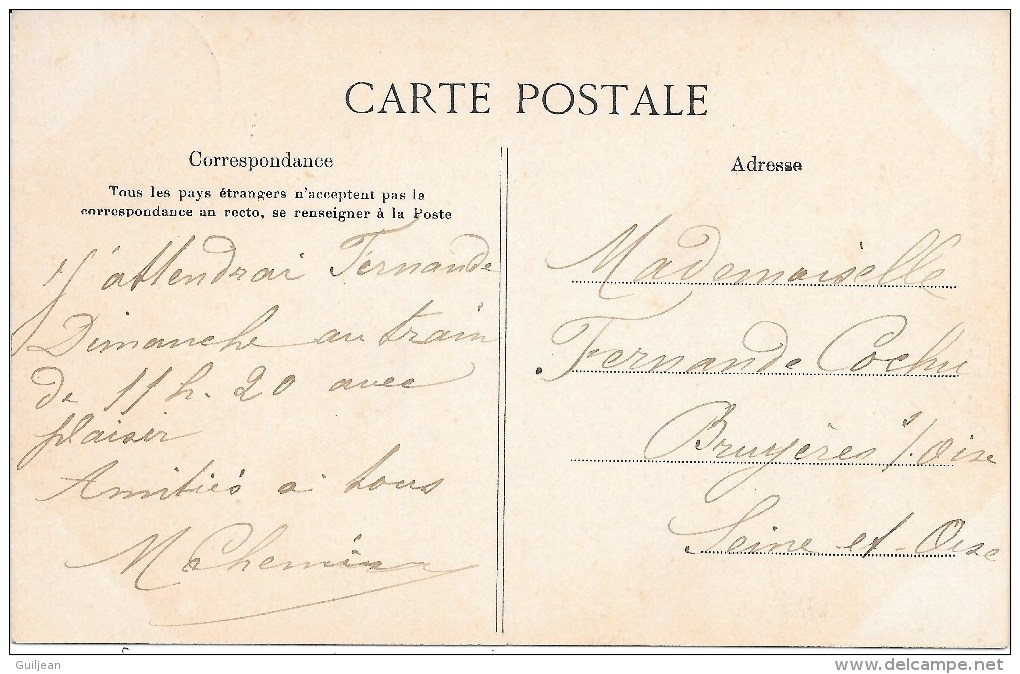 CARTE POSTALE
Correspondance
Tous les pays étrangers n'acceptent pas la
correspondance au recto, se renseigner à la Poste
J'attendrai Fernande
Dimanche au train
de 11h. 20 avec
plaisir
Amitiés à tous
M Chemin
Adresse
Mademoiselle
Fernande Cochu
Bruyères s/. Oise
Seine-et-Oise
Guiljean
www.delcampe.net